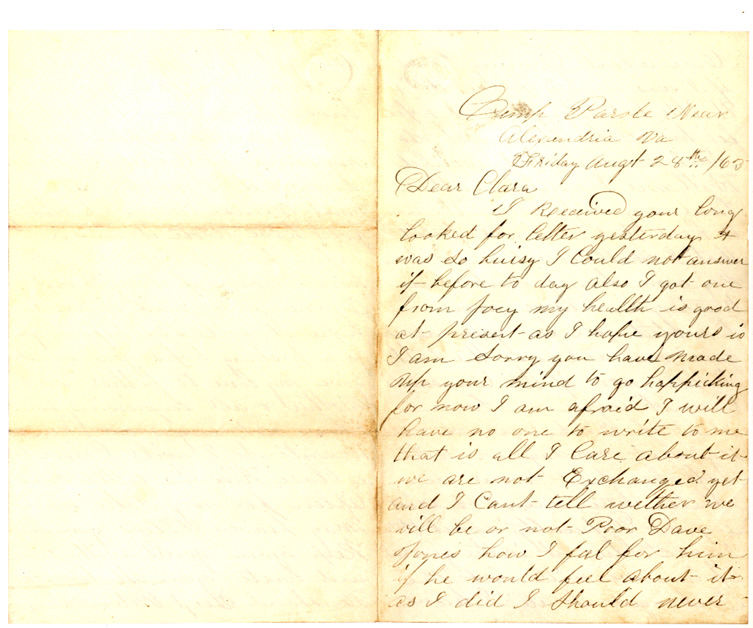 Camp Parole Near
Alexendria Va
Friday Augt 28th /63
Dear Clara
I Received your long
looked for letter yesterday &
was so buisy I Could not answer
it before to day also I got one
from Joey my health is good
at present as I hope yours is
I am Sorry you have made
up your mind to go hoppicking
for now I am afraid I will
have no one to write to me
that is all I Care about it
we are not Exchanged yet
and I Cant tell wether we
will be or not Poor Dave
how I fel for him
if he would feel about it
as I did I Should never